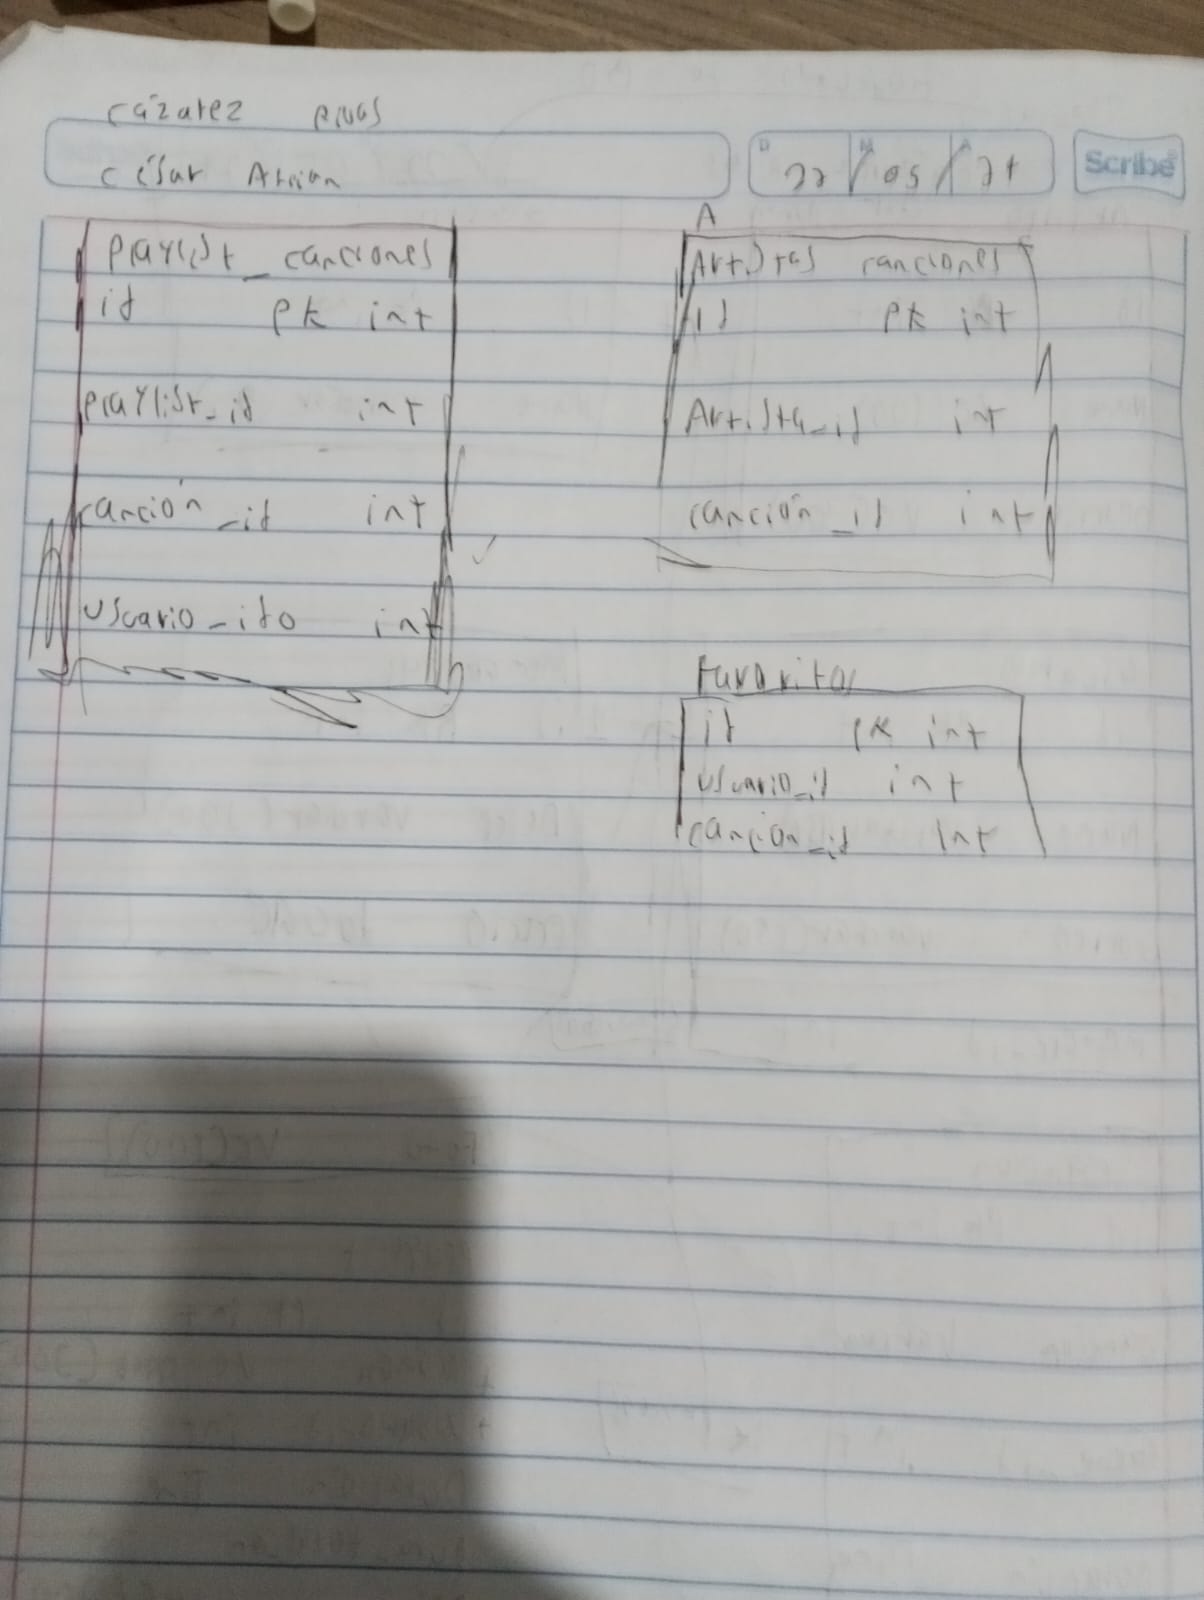 Cázarez
César
22/05/
Scribe
Playlist_canciones
id PK int
playlist_id int
canción_id int
Usuario_ido int
A
Artistas canciones
id PK int
Artista_id int
canción_id int
Favoritos
id PK int
usuario_id int
canción_id int